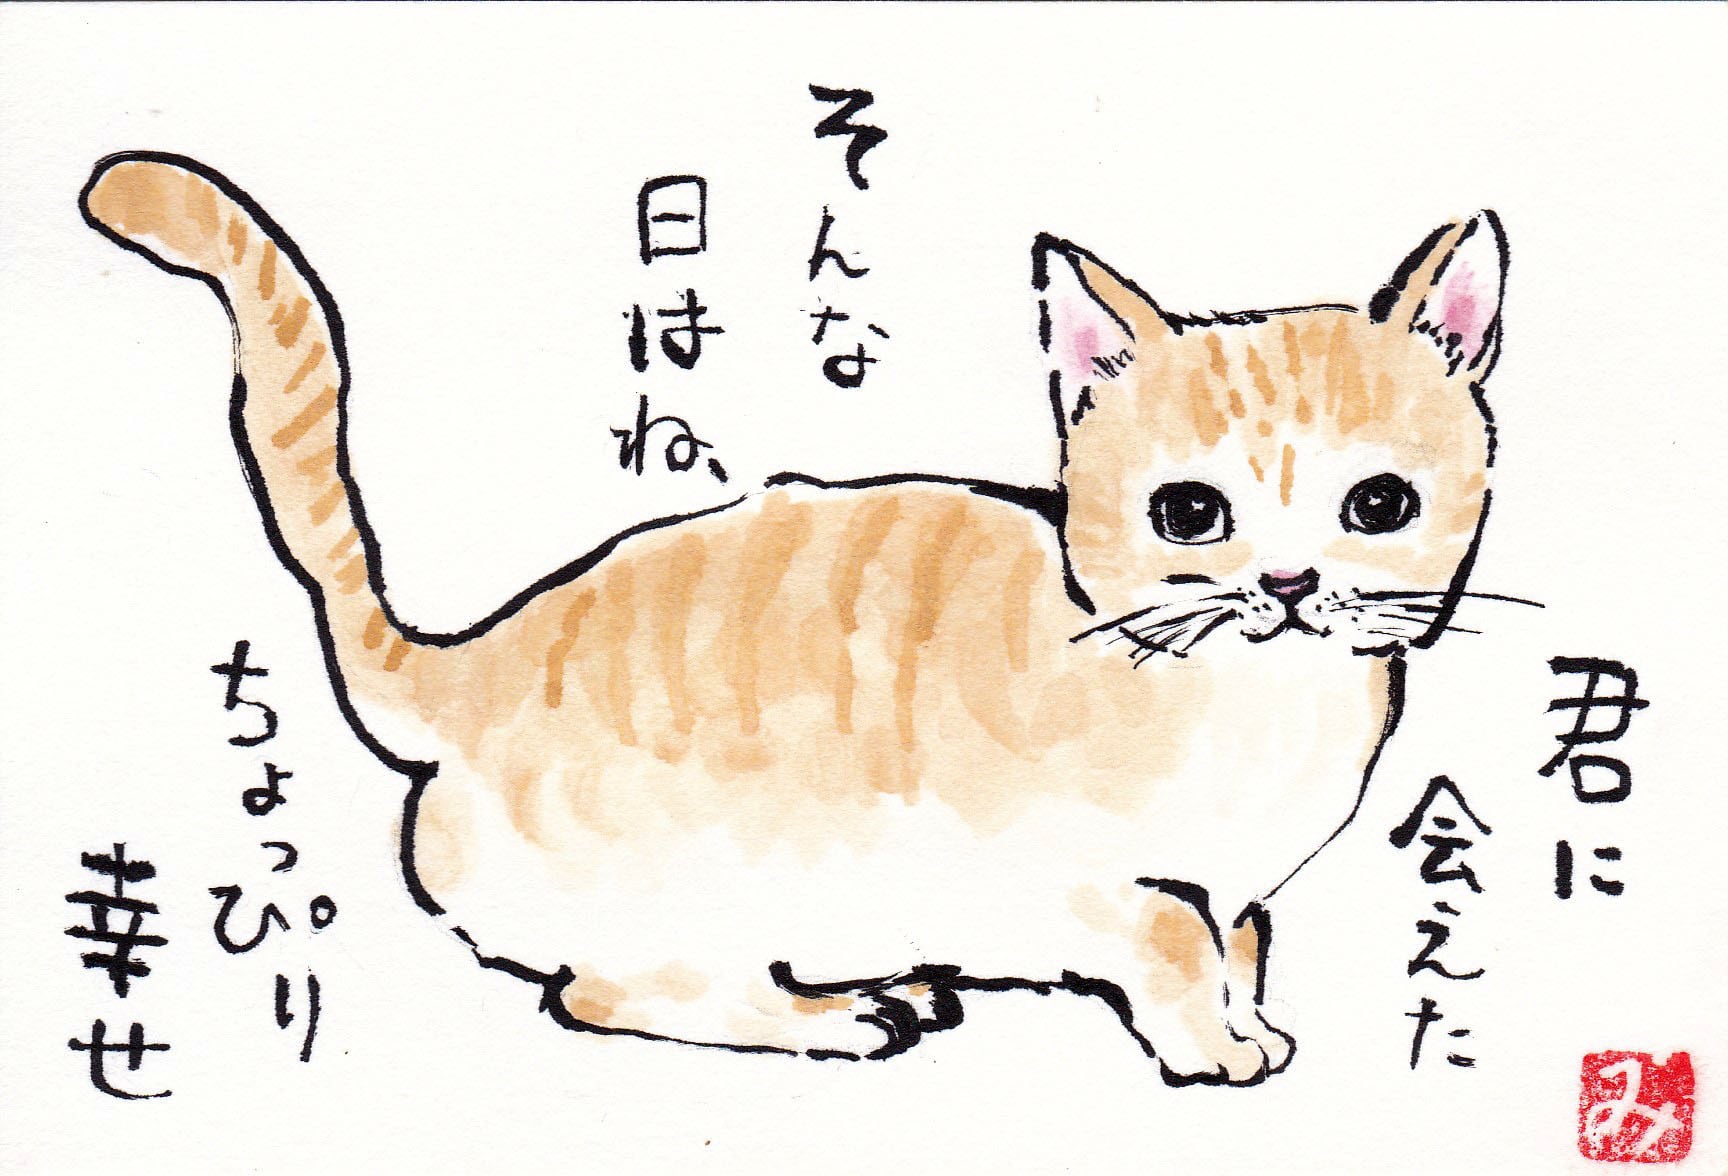 君に
会えた
そんな
日はね、
ちょっぴり
幸せ
み